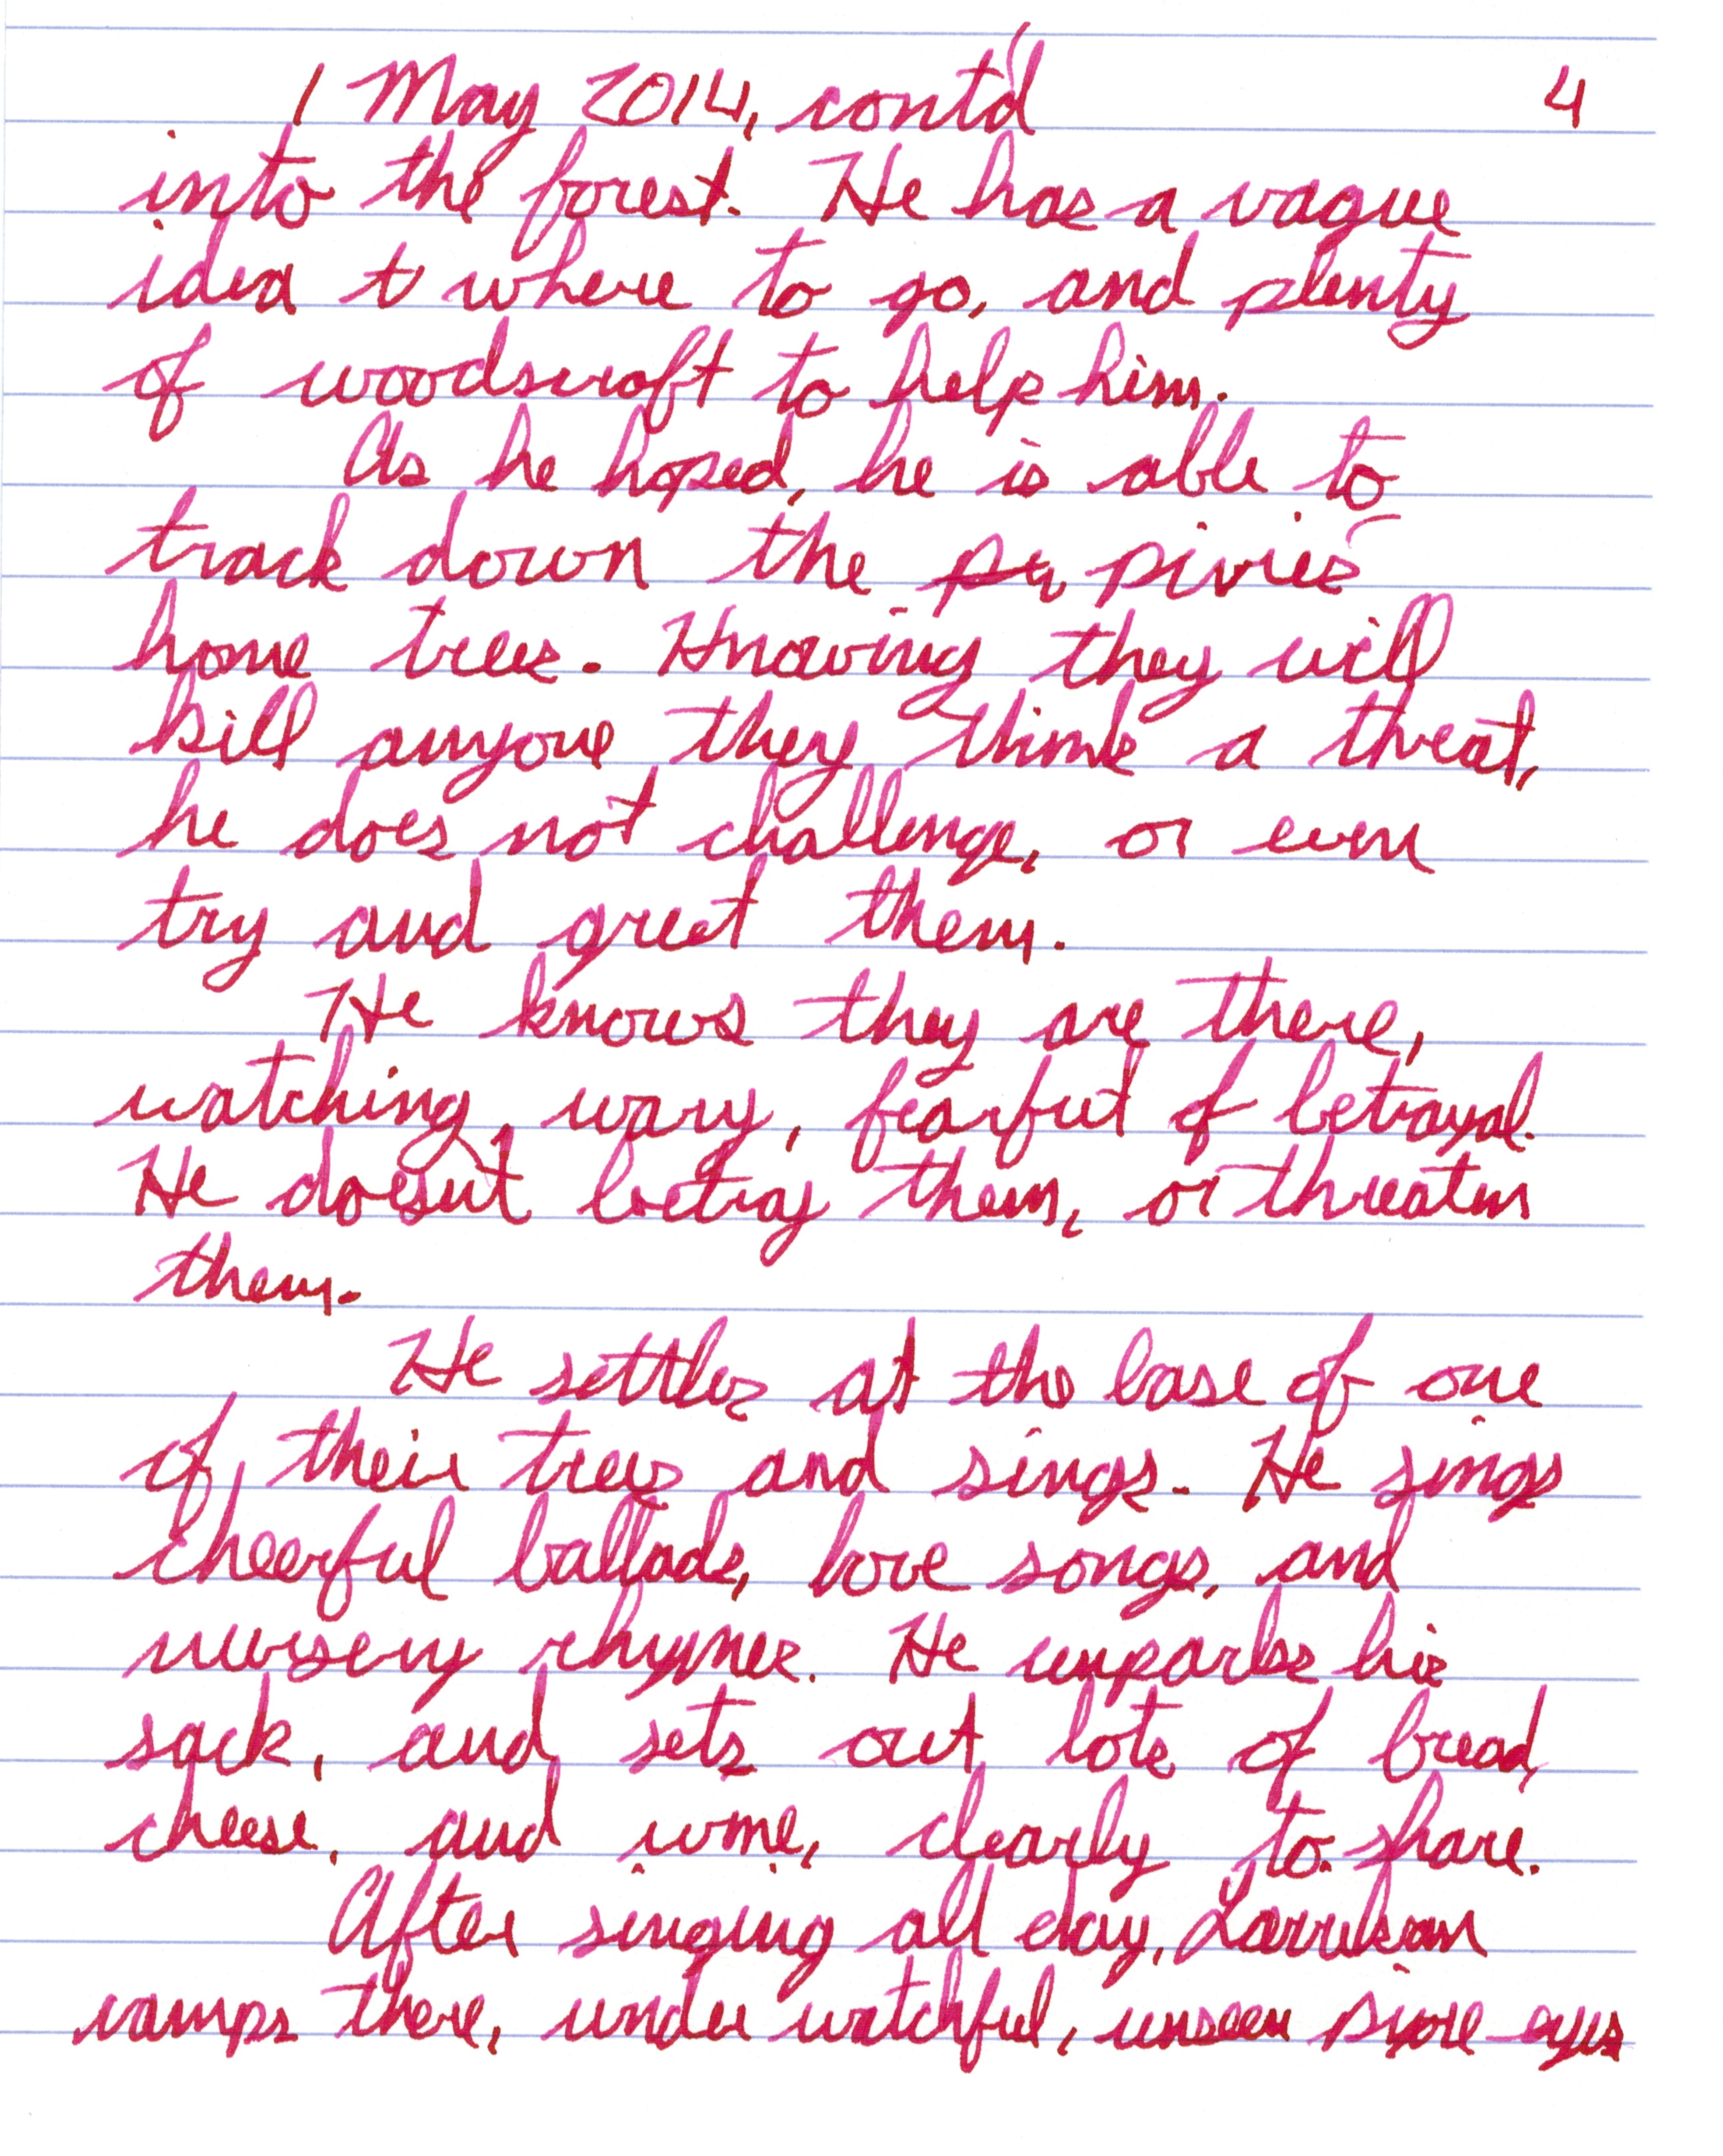 1 May 2014, cont'd 4
into the forest. He has a vague
idea t where to go, and plenty
of woodscraft to help him.
As he hoped, he is able to
track down the pixies'
home trees. Knowing they will
kill anyone they think a threat,
he does not challenge, or even
try and greet them.
He knows they are there,
watching, wary, fearful of betrayal.
He doesn't betray them, or threaten
them.
He settles at the base of one
of their trees and sings. He sings
cheerful ballads, love songs, and
nursery rhymes. He unpacks his
sack, and sets out lots of bread,
cheese, and wine, clearly to share.
After singing all day, Larrikan
camps there, under watchful, unseen pixie eyes